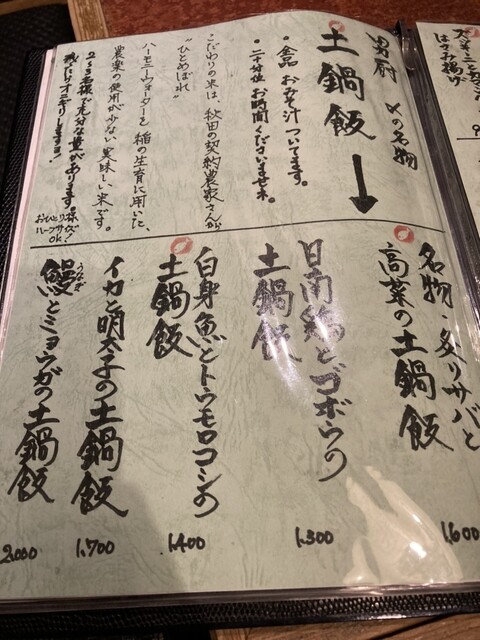 男厨 〆の名物
土鍋飯
・全品 おみそ汁ついてます。
・二十分位 お時間くださいませ。
こだわりの米は、秋田の契約農家さんから
"ひとめぼれ"
ハーモニーウォーターを稲の生育に用いた、
農薬の使用が少ない美味しい米です。
2〜3名様で充分な量があります。
残ったらオニギリします!
おひとり様
ハーフサイズ!
OK
名物・炙りサバと
高菜の土鍋飯
1.600
日南鶏とゴボウの
土鍋飯
1.300
白身魚とトウモロコシの
土鍋飯
1.400
イカと明太子の土鍋飯
1.700
うなぎ
鰻とミョウガの土鍋飯
2.000
はさみ揚げ